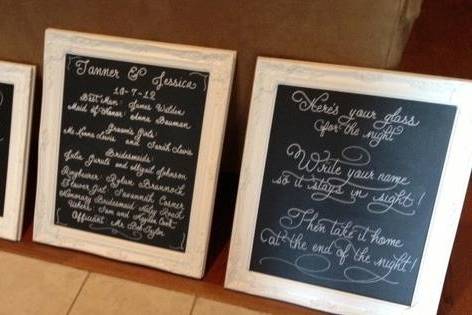 Tanner & Jessica
10-7-12
Best Man: James Wilden
Maid of Honor: Anna Bauman
Groom's Girls:
Ms Leanna Lewis and Sarah Lewis
Bridesmaids:
Julia and Abigail Johnson
Ringbearer: Rylan
Flower Girl: Savannah Corner
Honorary Bridesmaid: Holly Roach
Ushers: Sam and Hayden Cook
Officiant: Mr. Bob Taylor
Here's your glass
for the night
Write your name
so it stays in sight!
Then take it home
at the end of the night!